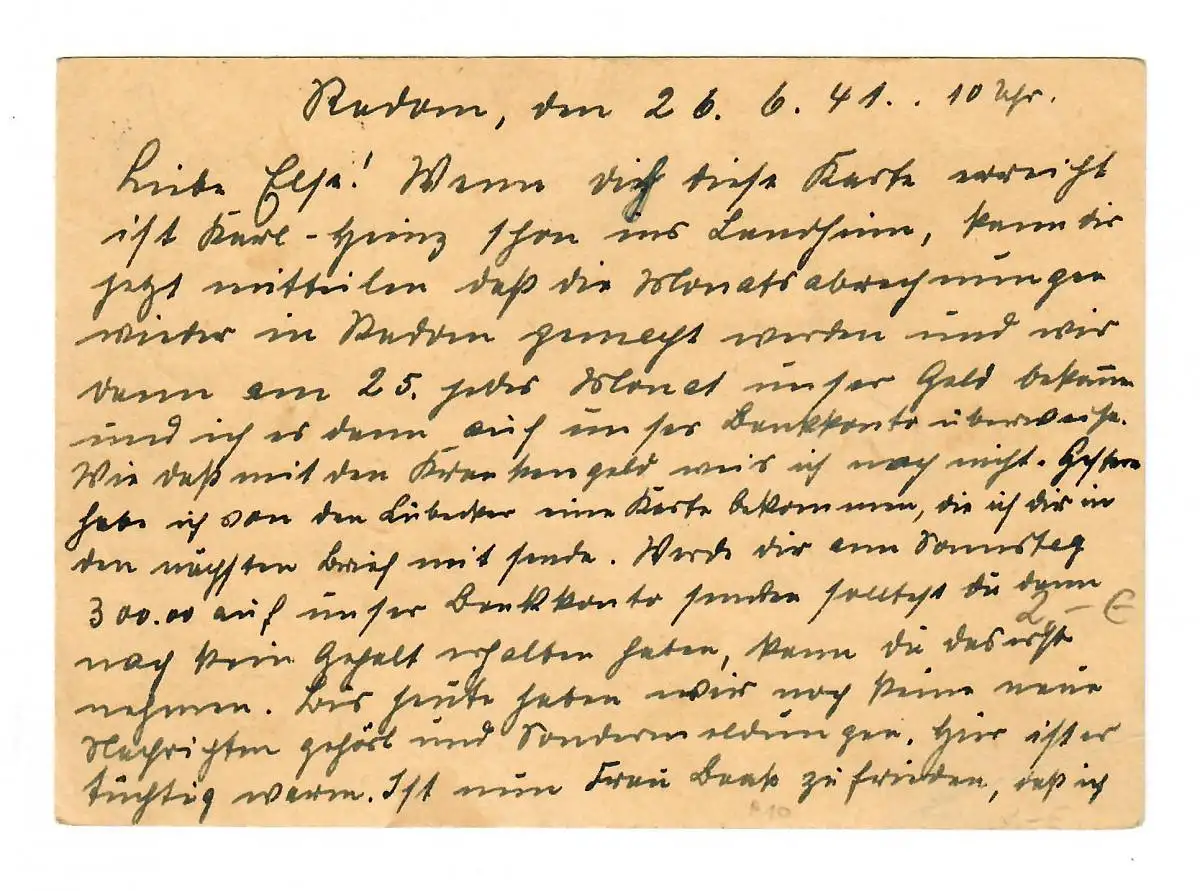 Radom, den 26. 6. 41. . 10 Uhr.
Liebe Else! Wenn dich diese Karte erreicht
ist Karl-Heinz schon ins Landheim, kann dir
jetzt mitteilen daß die Monatsabrechnungen
wieder in Radom gemacht werden und wir
dann am 25. jedes Monat unser Geld bekomm
und ich es dann auf unser Bankkonto überweise.
Wie daß mit den Krankengeld weis ich noch nicht. Gestern
habe ich von den Lübecker eine Karte bekommen, die ich dir in
den nächsten Brief mit sende. Werde dir am Sonnstag
300.00 auf unser Bankkonto senden solltest du dann
2,- €
noch kein Gehalt erhalten haben, kann du das erst
nehmen. Bis heute haben wir noch keine neue
Nachrichten gehört und Sondermeldungen. Hier ist es
tüchtig warm. Ist nun Frau zufrieden, daß ich